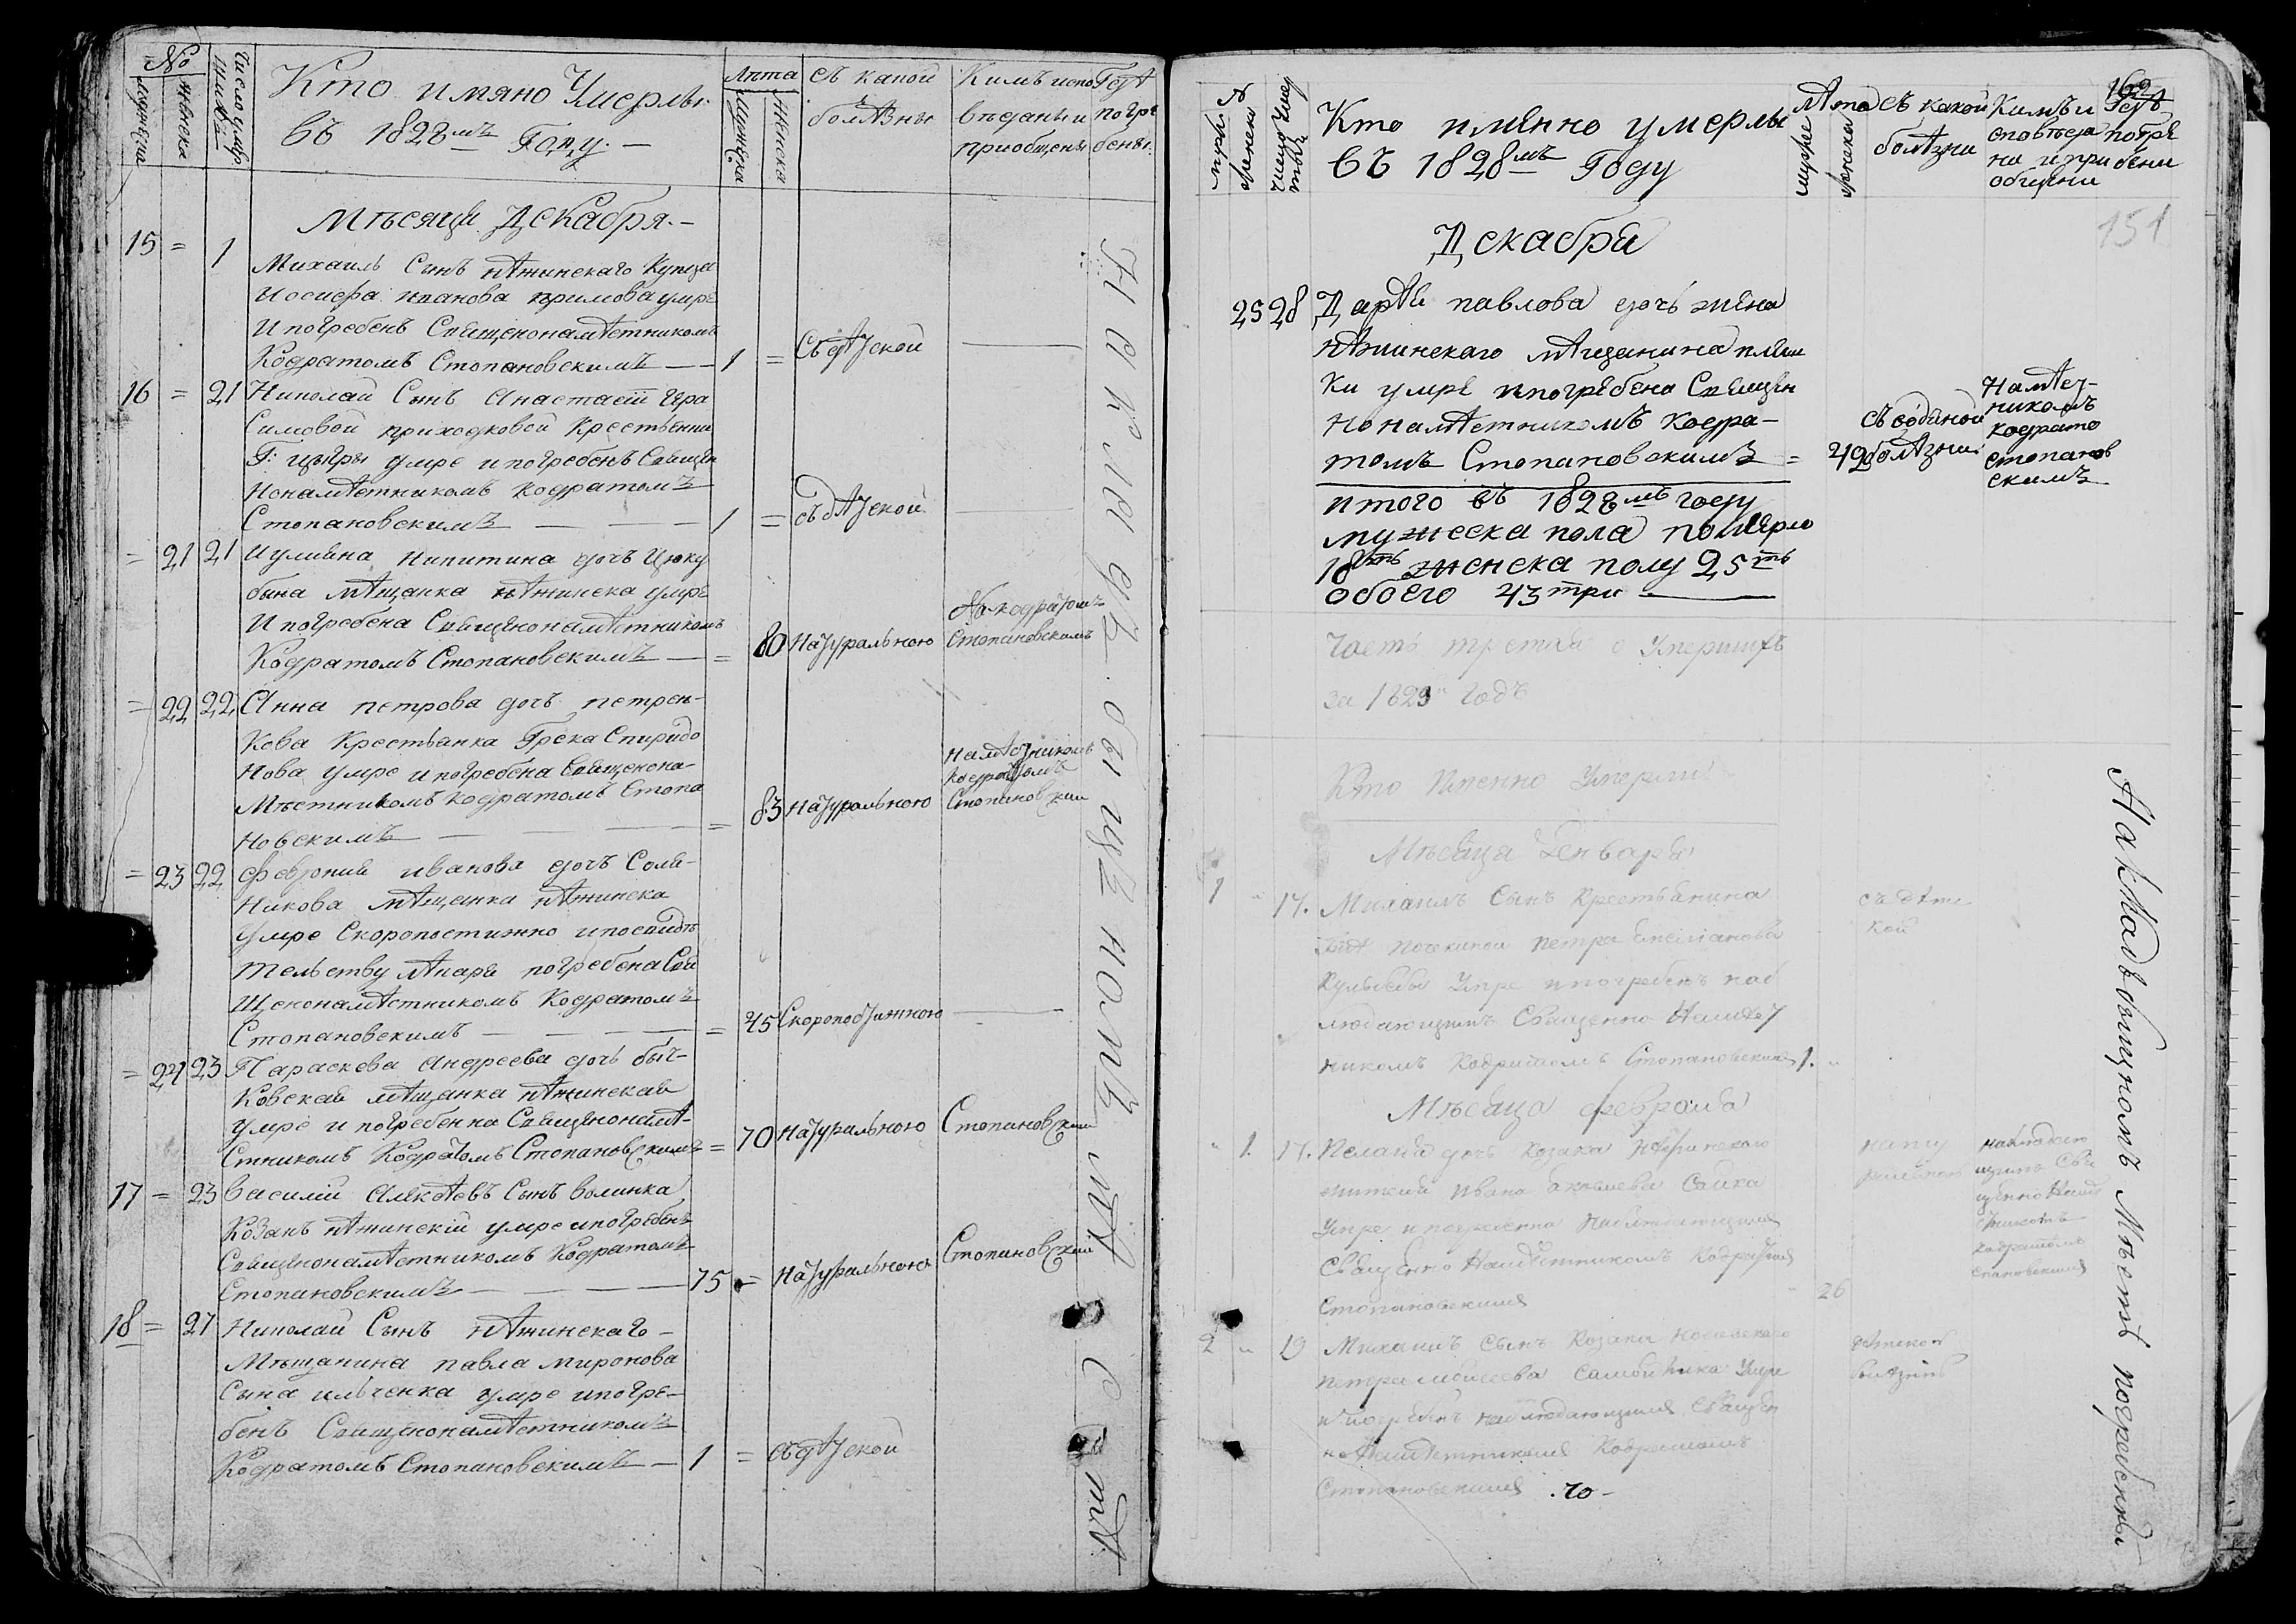 №
мужеска
женска
Число умр
ших
Кто имяно Умерлы
въ 1828мъ Году. —
Лѣта
Мужеска
Женска
Съ какой
болѣзны
Кимъ испо
вѣданы и
приобщены
Гдѣ
погре
бены
Мѣсяца Декабря. —
15 = 1
Михаилъ Сынъ нѣжинскаго Купца
Иосифа иванова
умре
И погребенъ Священонамѣстникомъ
Кодратомъ Стопановскимъ — 1 = Съ дѣтской —
16 = 21 Николай Сынъ Анастасіи Гера
Симовой приходковой крестьянки
умре и погребенъ Священ
Нонамѣстникомъ Кодратомъ
Стопановскимъ — — — 1 = съ дѣтской —
= 21 21 Иулияна Никитина дочь Цюку
бына мѣщанка нѣжинска умре
И погребена Священонамѣстникомъ
Кодратомъ Стопановскимъ — = 80 Натуральною
На кодратомъ
Стопановскимъ
= 22 22 Анна петрова дочь петрен-
Кова Крестьянка Грека Спиридо
Нова умре и погребена Священона-
Мѣстникомъ Кодратомъ Стопа
Новскимъ — — — = 83 Натуральною
Намѣстникомъ
Кодратомъ
Стопановским
= 23 22 Феврония иванова дочь Соля-
Никова мѣщанка нѣжинска
Умре Скоропостижно и по свидѣ
тельству лѣкаря погребена Свя
Щенонамѣстникомъ Кодратомъ
Стопановскимъ — — — = 45 Скоропостижною —
= 24 23 Параскева Андреева дочь быч-
Ковская мѣщанка нѣжинская
умре и погребенна Священонамѣ-
Стникомъ Кодратомъ Стопановскимъ = 70 Натуральною Стопановским
17 = 23 Василій Алексѣевъ Сынъ волинка
Козакъ нѣжинскій умре и погребенъ
Священонамѣстникомъ Кодратомъ
Стопановскимъ — — — 75 = Натуральною Стопановским
18 = 27 Николай Сынъ нѣжинскаго —
Мѣщанина павла миронова
Сына ильченка умре и погре-
бенъ Священонамѣстникомъ
Кодратомъ Стопановскимъ — 1 = съ дѣтской
На кладбищѣ
162
Кто имянно умерлы
въ 1828мъ Году
Лѣта
Съ какой
болѣзни
Кимъ и
сповѣда
ни и при
общени
Гдѣ
погре
бени
151
Декабря
25 28 Дарѣя павлова дочь жена
нѣжинскаго мѣщанина пляш
ки умре и погребена Священ
Нонамѣстникомъ Кодра-
томъ Стопановскимъ = 42
болѣзни
Намѣст-
никомъ
кодрато
стопанов
скимъ
итого въ 1828мъ году
мужеска пола померло
18ть женска полу 25ть
обоего 43 три —
Часть третая о Умершихъ
за 1829 годъ
Кто Именно Умерли
Мѣсяца Генваря
1 " 17. Михаилъ Сынъ Крестьянина
петра Емелианова
Умре и погребенъ наб
людающимъ Священно Намѣст
никомъ Кодратомъ Стопановскимъ 1. "
съ дѣтс
кой
Мѣсяца февраля
" 1. 17. Пелагия дочь Козака Нѣжинскаго
жителя Ивана
Умре и погребенна Наблюдающимъ
Священно Намѣстникомъ Кодратомъ
Стопановскимъ " 26
нату
ральною
наблюдаю
щимъ Свя
щенно Намѣ
стникомъ
Кодратомъ
Стпановскимъ
2 " 19 Михаилъ Сынъ Козака
петра моисеева Умре
и погребенъ наблюдающимъ Священ
но Намѣстникомъ Кодратомъ
Стопановскимъ .10-
дѣтской
болѣзни
На Кладбищномъ Мѣстѣ погребены